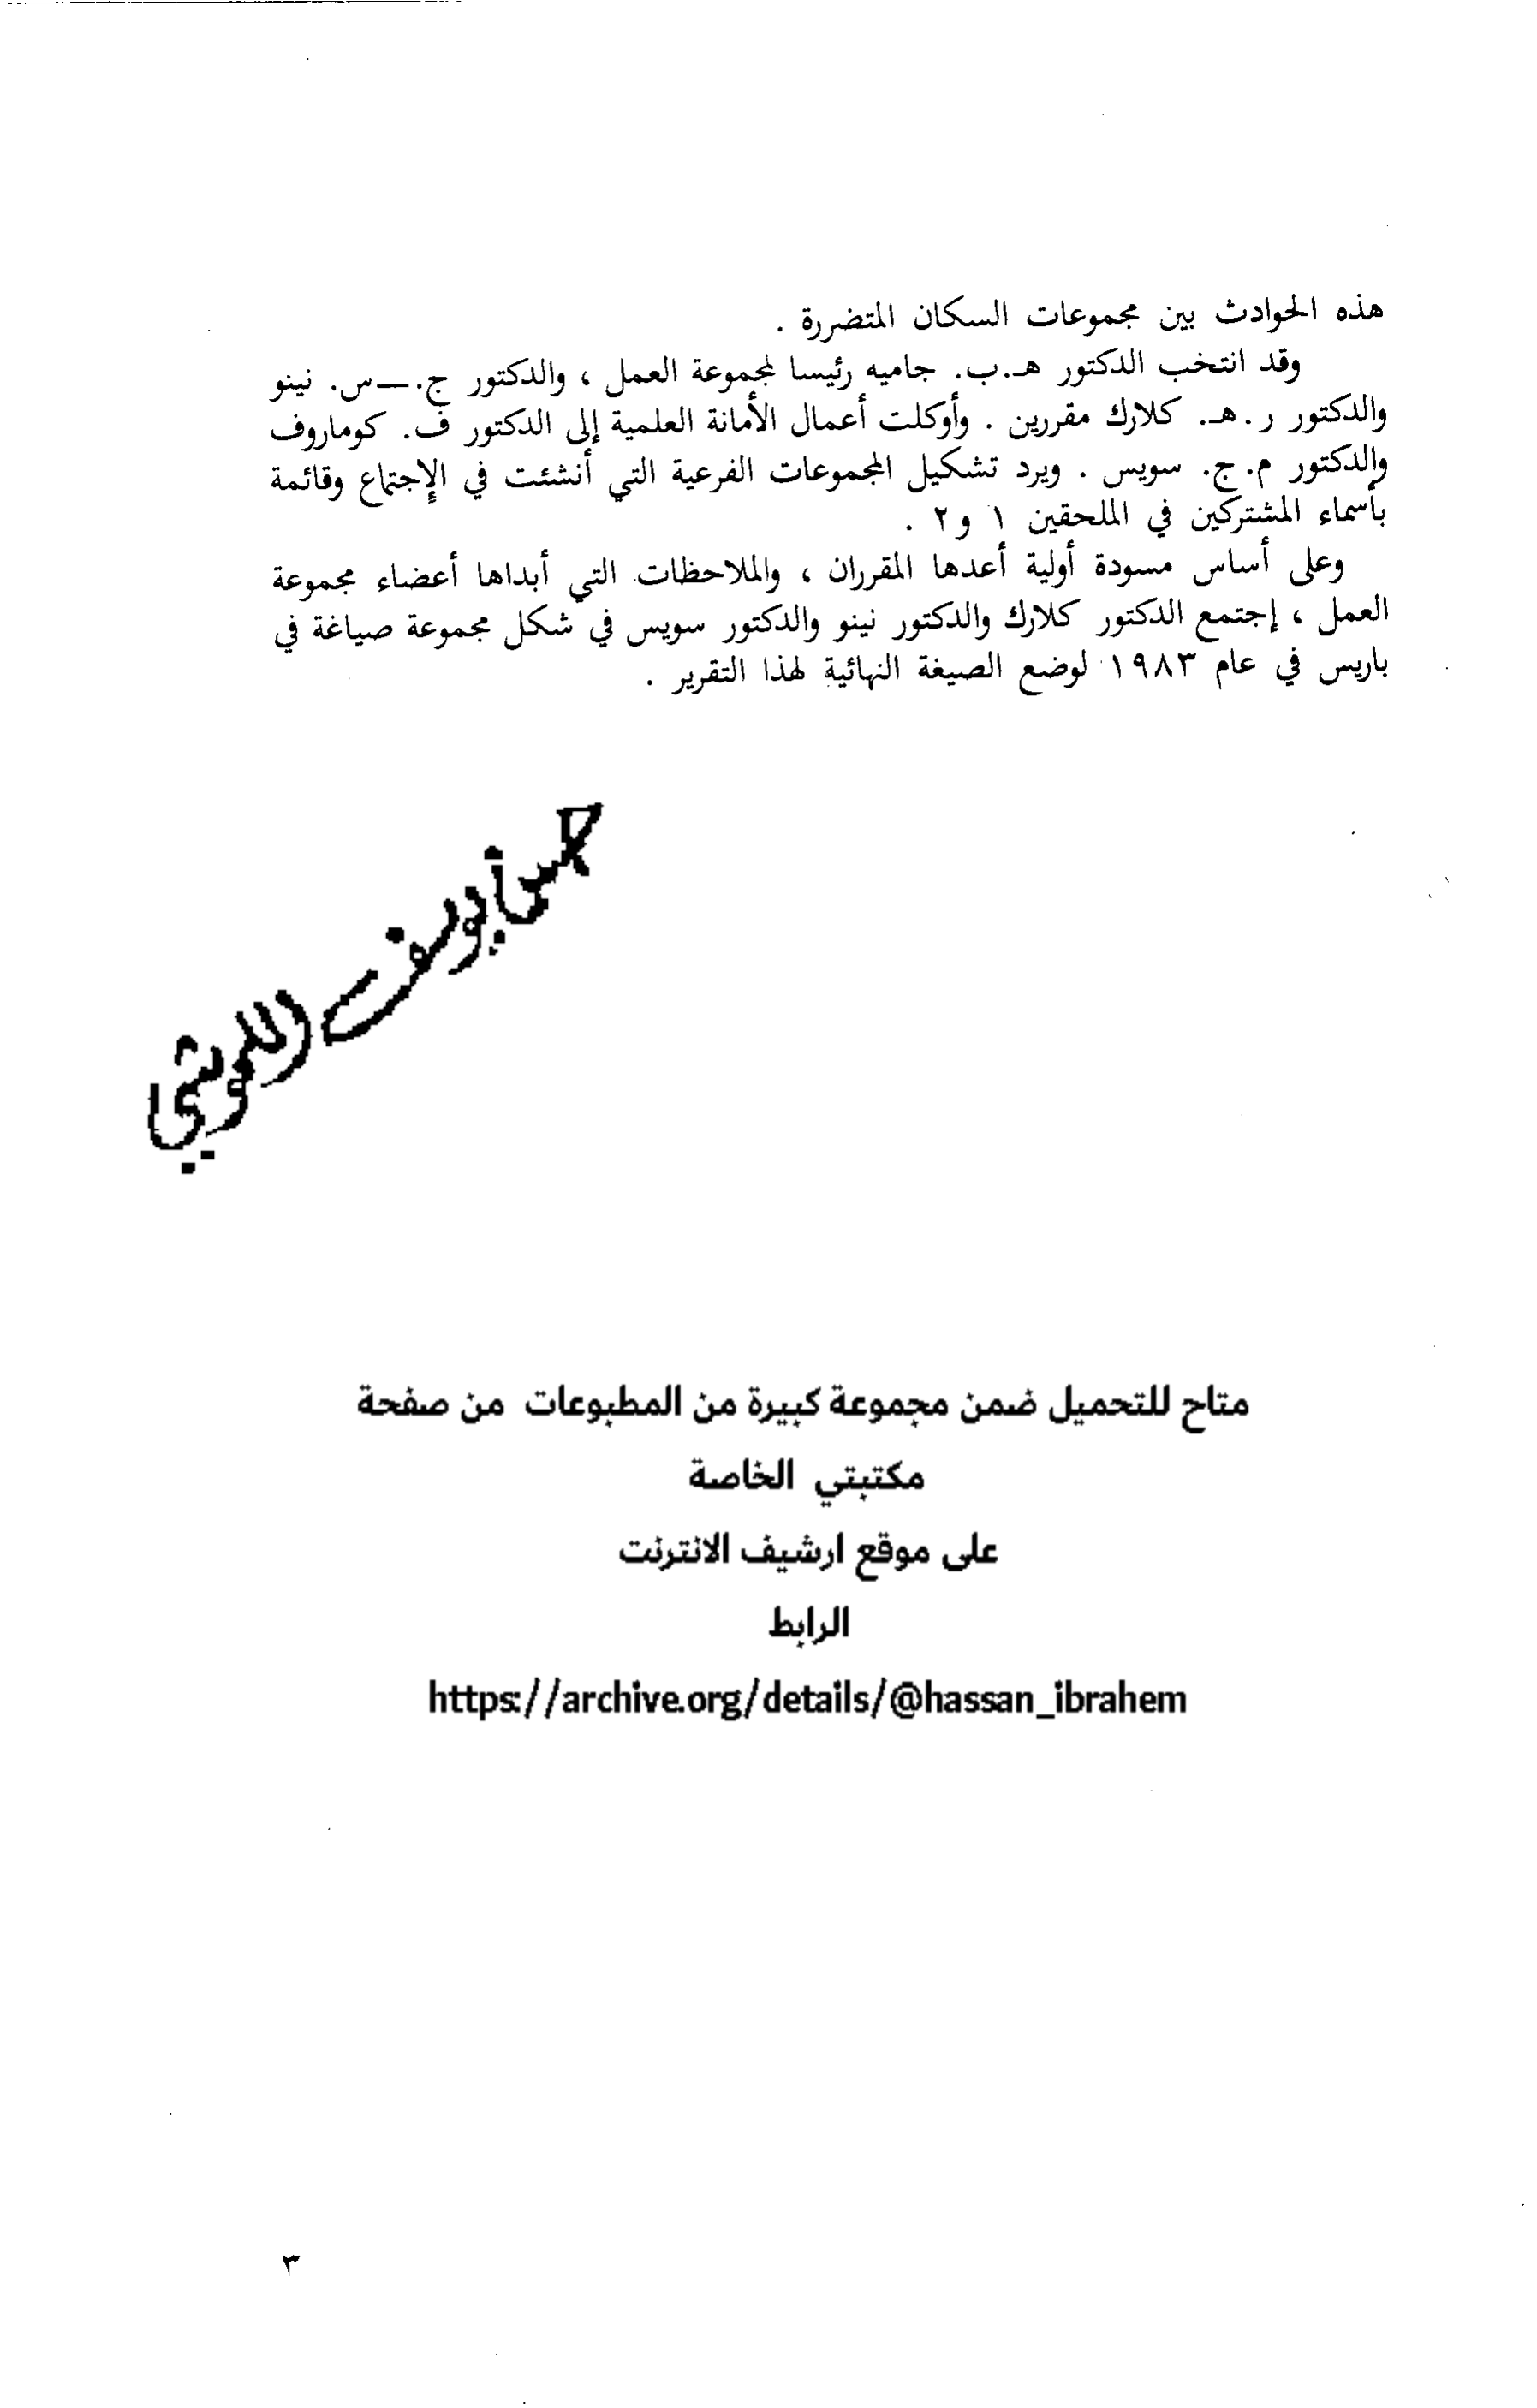 هذه الحوادث بين مجموعات السكان المتضررة .
وقد انتخب الدكتور هـ.ب. جاميه رئيسا لمجموعة العمل ، والدكتور ج.—س. نينو
والدكتور ر.هـ. كلارك مقررين . وأوكلت أعمال الأمانة العلمية إلى الدكتور ف. كوماروف
والدكتور م.ج. سويس . ويرد تشكيل المجموعات الفرعية التي أنشئت في الإجتماع وقائمة
بأسماء المشتركين في الملحقين ١ و٢ .
وعلى أساس مسودة أولية أعدها المقرران ، والملاحظات التي أبداها أعضاء مجموعة
العمل ، إجتمع الدكتور كلارك والدكتور نينو والدكتور سويس في شكل مجموعة صياغة في
باريس في عام ١٩٨٣ لوضع الصيغة النهائية لهذا التقرير .
متاح للتحميل ضمن مجموعة كبيرة من المطبوعات من صفحة
مكتبتي الخاصة
على موقع ارشيف الانترنت
الرابط
https://archive.org/details/@hassan_ibrahem
٣